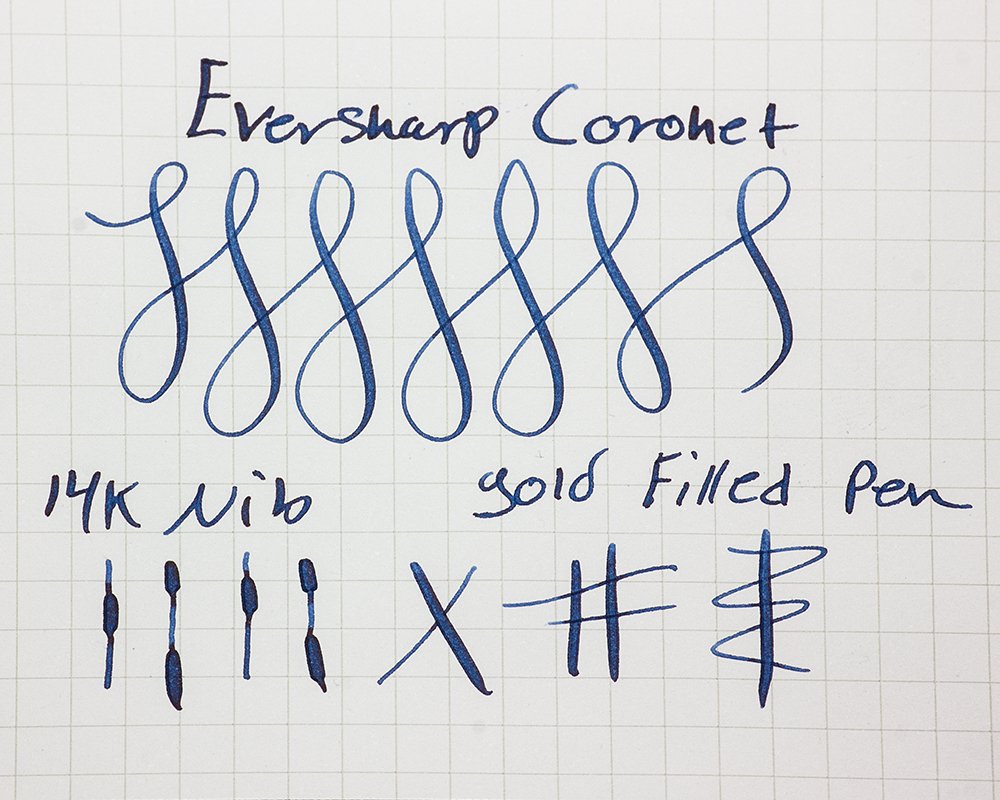 Eversharp Coronet
14K Nib gold Filled Pen